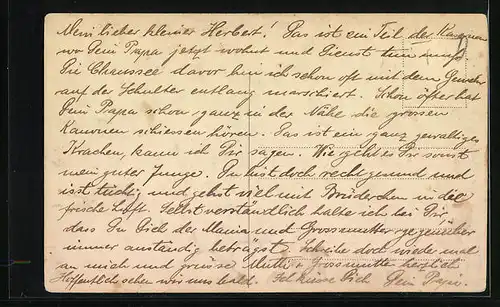 Mein lieber kleiner Herbert! Das ist ein Teil der
wo Dein Papa jetzt wohnt und Dienst tun muss
Die Chaussee davor bin ich schon oft mit dem Gewehr
auf der Schulter entlang marschiert. Schon öfter hat
Dein Papa schon, ganz in der Nähe die grossen
Kanonen schiessen hören. Das ist ein ganz gewaltiges
Krachen, kann ich Dir sagen. Wie geht es Dir sonst
mein guter Junge. Du bist doch recht gesund und
isst tüchtig und gehst viel mit Brüderchen in die
frische Luft. Selbstverständlich halte ich bei Dir,
dass Du Dich der Mama und Grossmutter gegenüber
immer anständig beträgst. Schreibe doch wieder mal
an mich und grüsse Mutti + Grossmutter herzlich
Hoffentlich sehen wir uns bald. Ich küsse Dich Dein Papa.